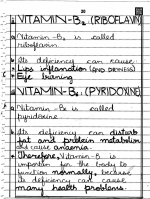 20
VITAMIN-B2 (RIBOFLAVIN)
Vitamin-B2 is called
riboflavin
Its deficiency can cause
Lips inflamation (AND DRYNESS)
Eye
VITAMIN-B6 (PYRIDOXINE)
Vitamin-B6 is called
pyridoxine
Its deficiency can disturb
fat and protein metabolism
also cause anaemia.
Therefore, Vitamin-B is
important for the body to
function normally, because
its deficiency can cause
many health problems.